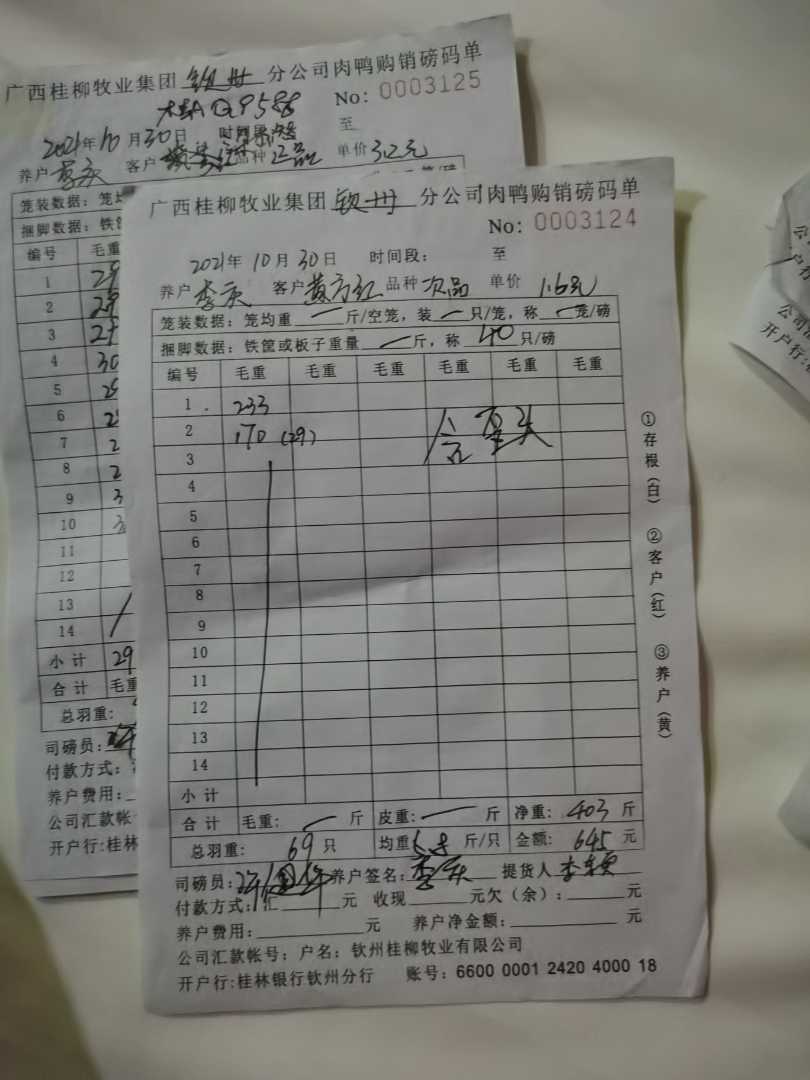 广西桂柳牧业集团 钦州 分公司肉鸭购销磅码单
No: 0003125
2021年10月30日 时间段 至
养户 李庆 客户 品种 正品 单价 3.2元
笼装数据: 笼均
捆脚数据: 铁
编号 毛重
1
2
3
4 30
5
6
7
8
9
10
11
12
13
14
小计 29
合计 毛重
总羽重:
司磅员:
付款方式:
养户费用:
公司汇款帐
开户行:桂林
广西桂柳牧业集团 钦州 分公司肉鸭购销磅码单
No: 0003124
2021年10月30日 时间段: 至
养户 李庆 客户 黄方红 品种 次品 单价 1.6元
笼装数据: 笼均重 一 斤/空笼, 装 一 只/笼, 称 一 笼/磅
捆脚数据: 铁筐或板子重量 一 斤, 称 40 只/磅
编号 毛重 毛重 毛重 毛重 毛重 毛重
1 233
2 170 (29)
3
4
5
6
7
8
9
10
11
12
13
14
小计
合计 毛重: 一 斤 皮重: 一 斤 净重: 403 斤
总羽重: 69 只 均重 斤/只 金额: 645 元
司磅员: 养户签名: 李庆 提货人
付款方式: 汇 元 收现 元欠(余): 元
养户费用: 元 养户净金额: 元
公司汇款帐号: 户名: 钦州桂柳牧业有限公司
开户行:桂林银行钦州分行 账号: 6600 0001 2420 4000 18
①存根(白) ②客户(红) ③养户(黄)